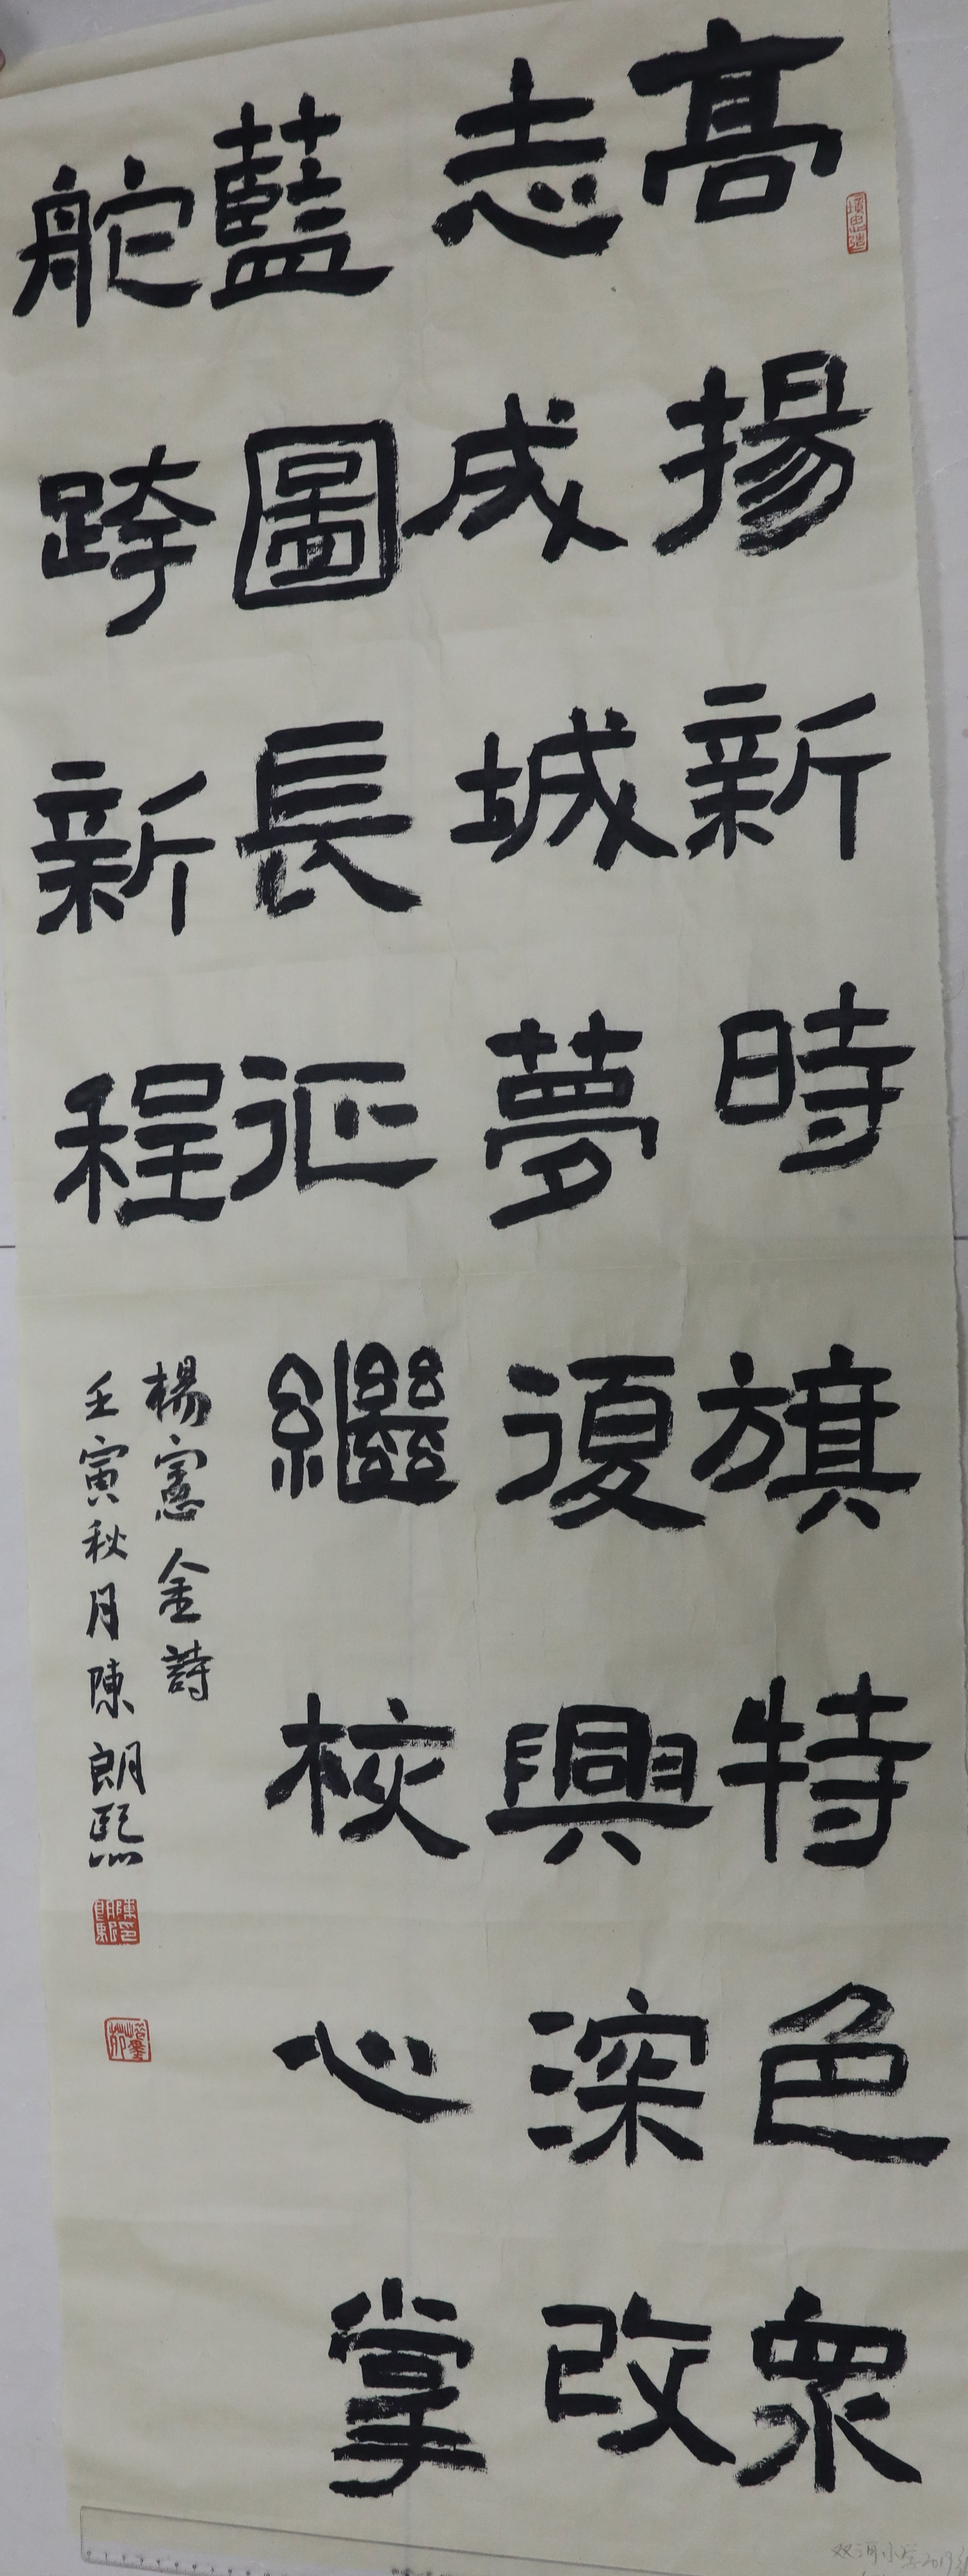 高揚新時旗特色眾
志成城夢復興深改
藍圖長征繼校心掌
舵跨新程
楊憲金詩
壬寅秋月陳朗熙